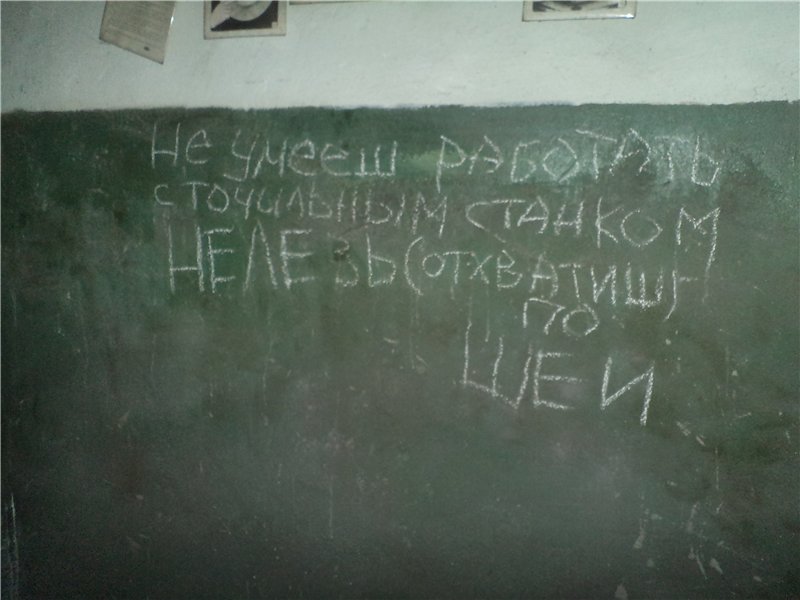 Не умееш РАБОТАТЬ
с точильным СТАНКОМ
НЕЛЕЗЬ (ОТХВАТИШ)
ПО
ШЕИ